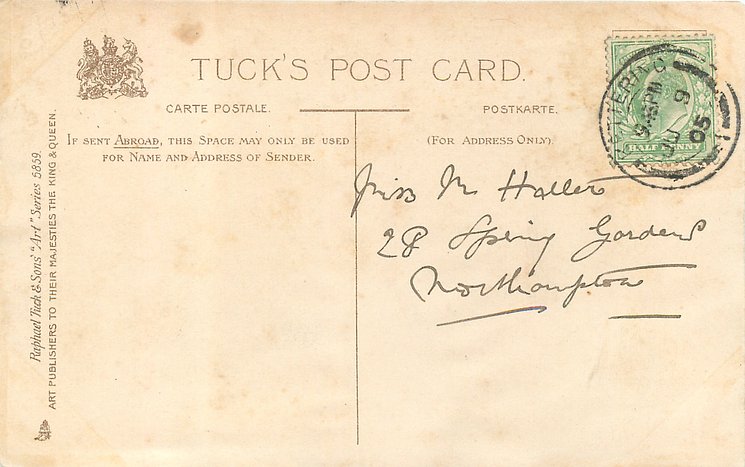 TUCK'S POST CARD.
CARTE POSTALE.
POSTKARTE.
IF SENT ABROAD, THIS SPACE MAY ONLY BE USED
FOR NAME AND ADDRESS OF SENDER.
(FOR ADDRESS ONLY).
Raphael Tuck & Sons' "Art" Series 5859.
ART PUBLISHERS TO THEIR MAJESTIES THE KING & QUEEN.
HALF PENNY
9
05
Miss M
28 Spring Gardens
Northampton